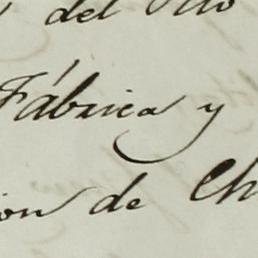 del
Fábrica y
ion de Ch